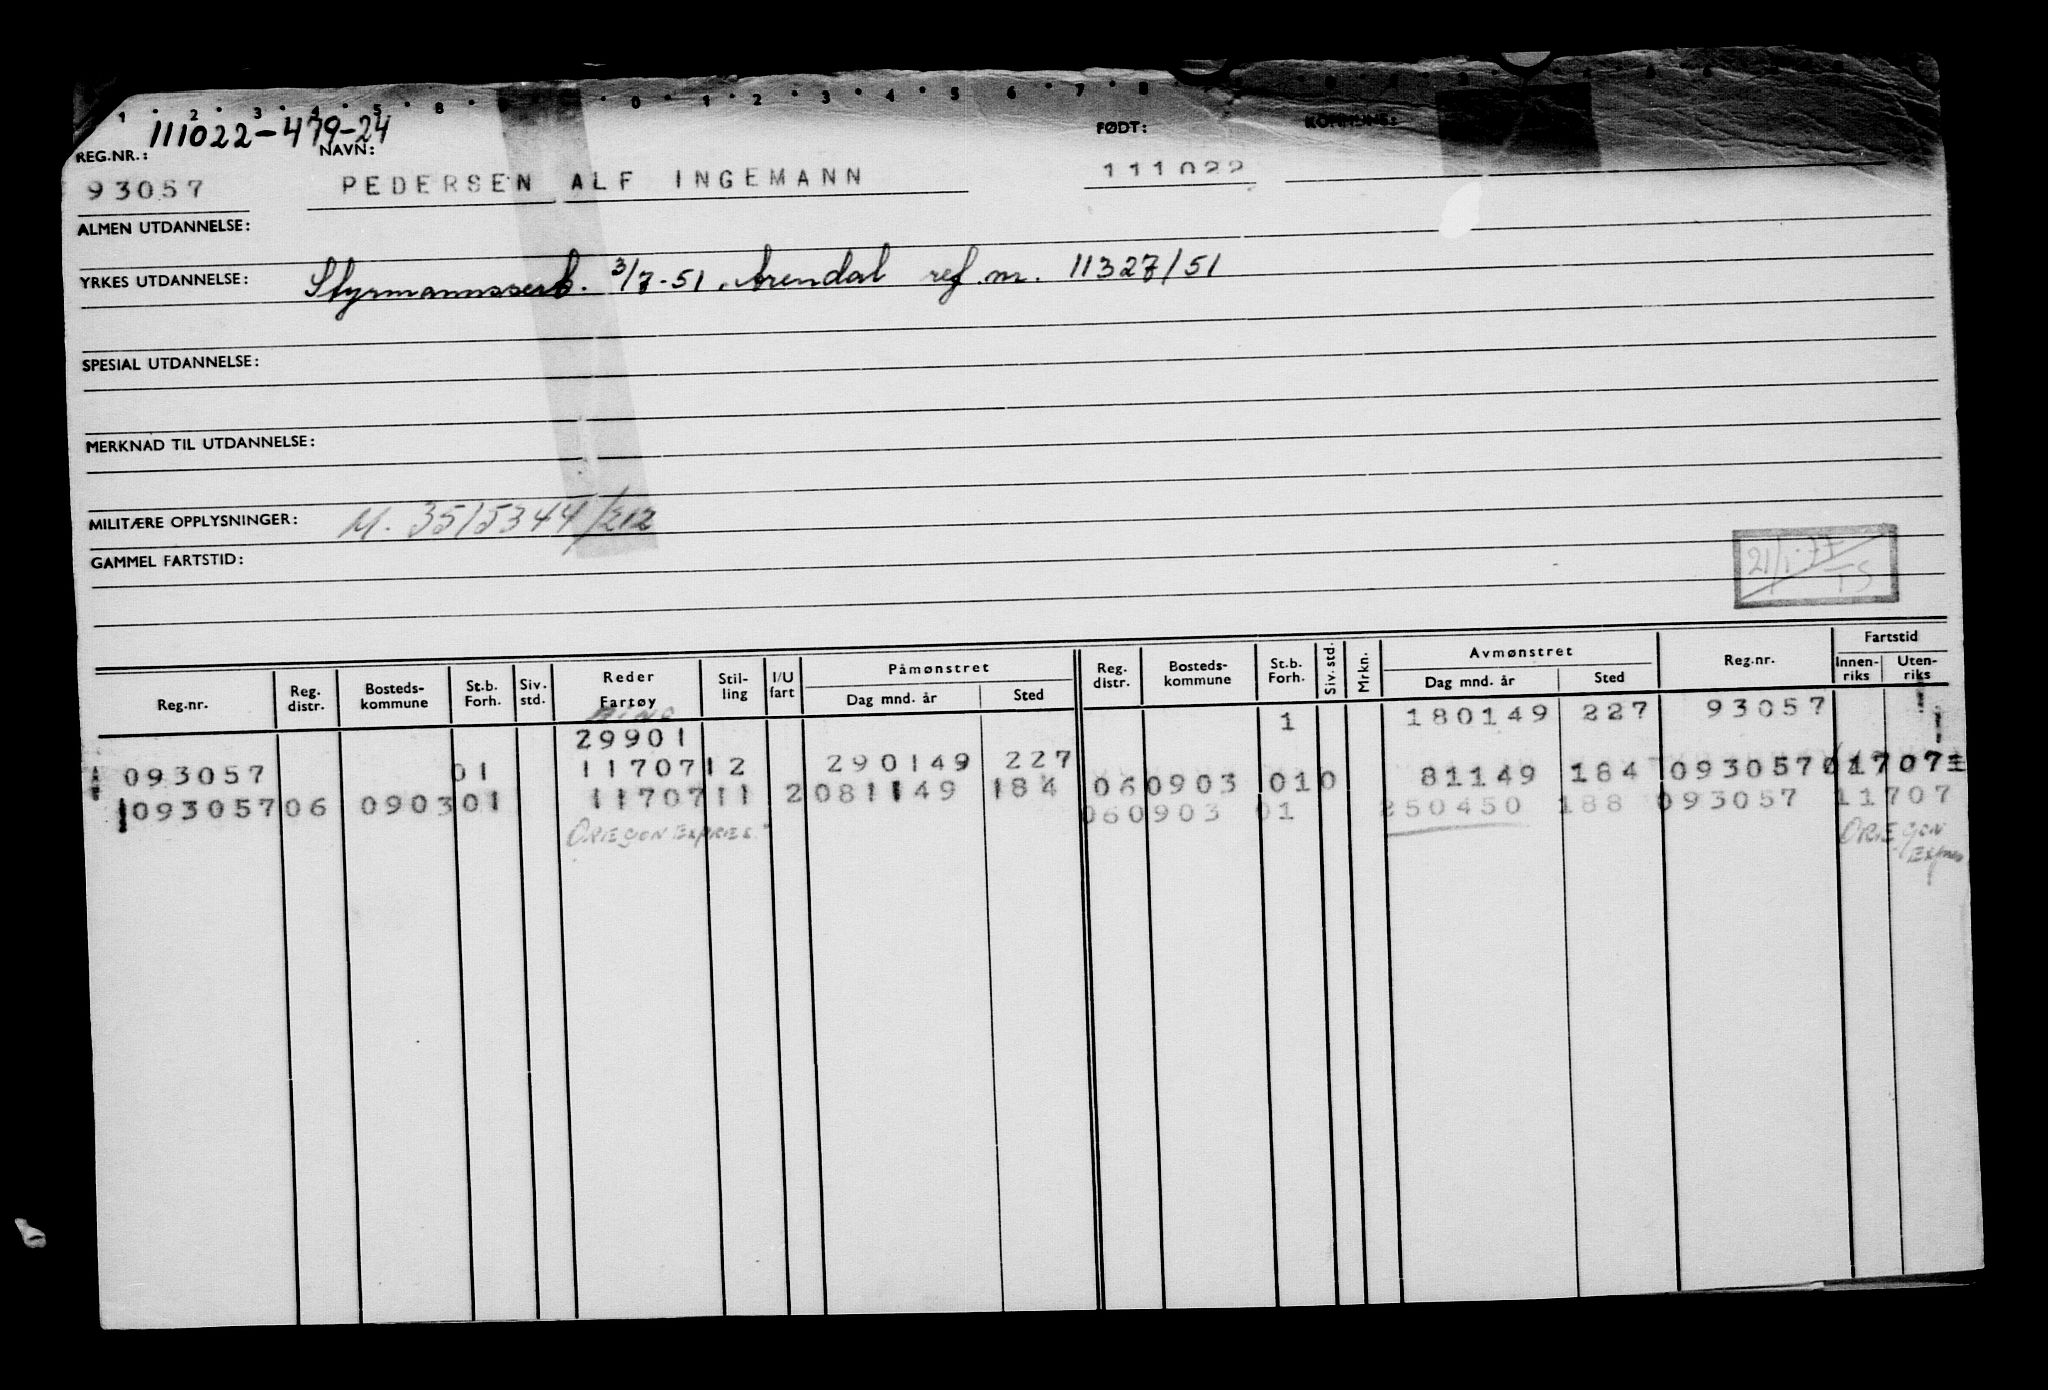 1 2 3 4 5 8 0 1 2 3 4 5 6 7 8
111022-479-24
REG.NR.: NAVN: FØDT: KOMMUNE:
93057 PEDERSEN ALF INGEMANN 111022
ALMEN UTDANNELSE:
YRKES UTDANNELSE: Styrmannsserb. 3/7-51. Arendal ref.nr. 11327/51
SPESIAL UTDANNELSE:
MERKNAD TIL UTDANNELSE:
MILITÆRE OPPLYSNINGER: M. 3515344/212
GAMMEL FARTSTID:
21/1-77
TS
Reg.nr. Reg. distr. Bosteds- kommune St.b. Forh. Siv. std. Reder Fartøy Stil- ling I/U fart Påmønstret Dag mnd. år Sted Reg. distr. Bosteds- kommune St.b. Forh. Siv. std. Mrkn. Avmønstret Dag mnd. år Sted Reg.nr. Fartstid Innen- riks Uten- riks
29901 1 180149 227 93057
093057 01 11707 12 290149 227 060903 010 81149 184 093057 11707
093057 06 0903 01 11707 11 2 081149 184 060903 01 250450 188 093057 11707
OREGON EXPRESS OREGON Express